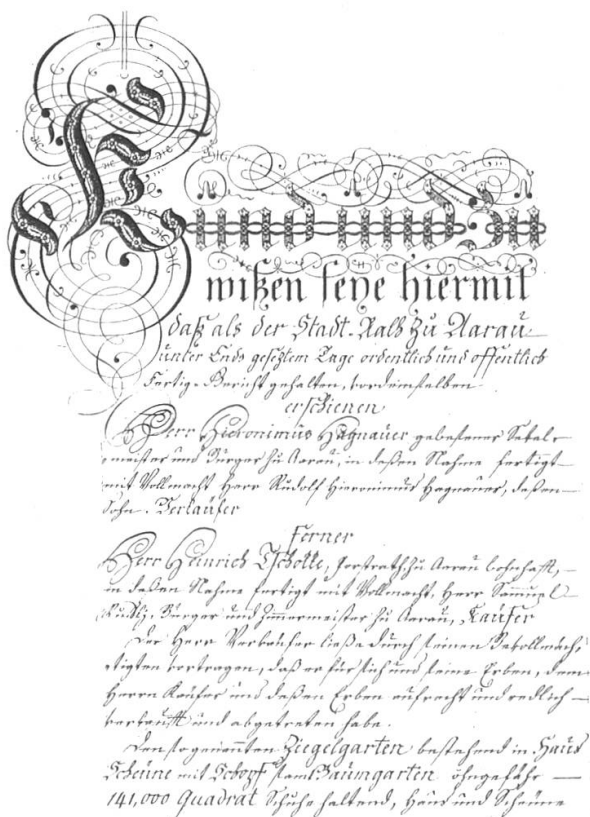 Kund und Zu
wißen seye hiermit
daß als der Stadt-Rath zu Aarau
unter Ends gesetztem Tage ordentlich und offentlich
Fertig-Gericht gehalten, vor demselben
erschienen
Herr Hieronimus Hagnauer gewesener Sekel-
meister und Burger zu Aarau, in deßen Nahme fertigt
mit Vollmacht Herr Rudolf Hieronimus Hagnauer, deßen
Sohn. Verkäufer
Ferner
Herr Heinrich Tschokke, Forstrath zu Aarau wohnhafft,
in deßen Nahme fertigt mit Vollmacht, Herr Samuel
Burger und Zimmermeister zu Aarau, Käufer
Der Herr Verkäufer ließe durch seinen Bevollmäch-
tigten vortragen, daß er für sich und seine Erben, dem
Herrn Käufer und deßen Erben aufrecht und redlich
verkaufft und abgetreten habe.
Den sogenannten Ziegelgarten bestehend in Haus
Scheune mit Schopf samt Baumgarten ohngefähr
141,000 Quadrat Schuhe haltend, Haus und Scheune